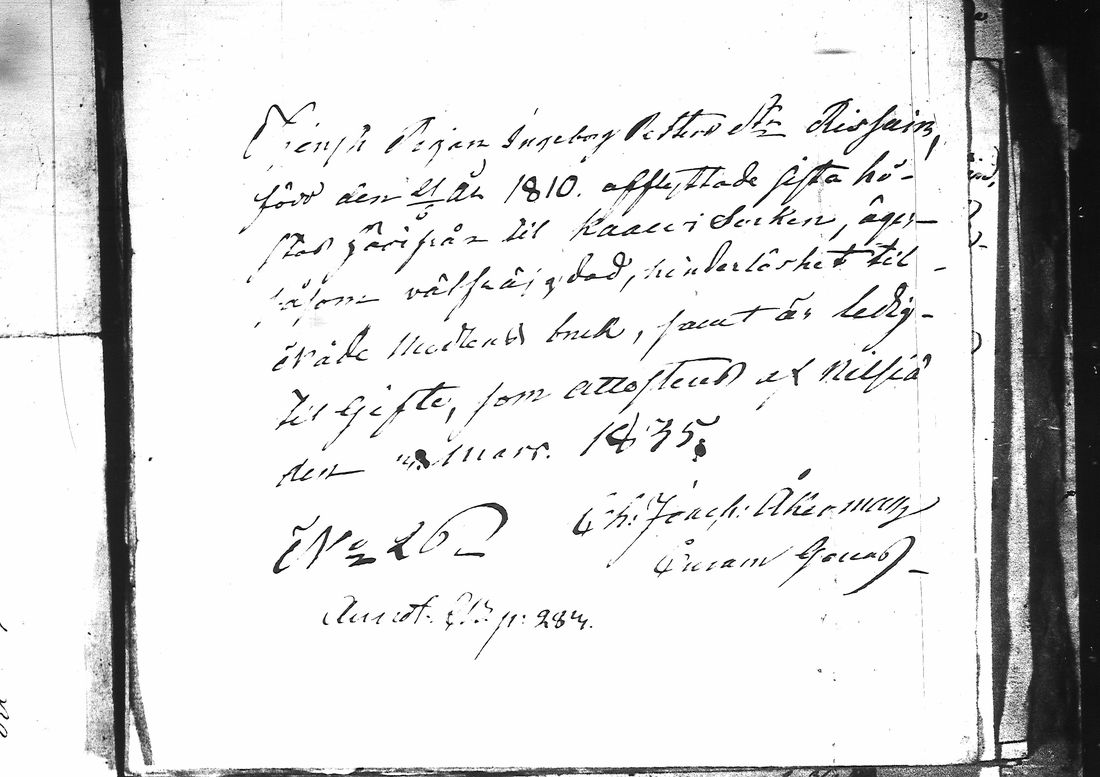 Pigan Ingeborg Petters Dr Rissain,
född den 21 År 1810. afflyttade sista hö-
stas härifrån til Kaavi Socken, äger
såsom välfräjdad, hinderlöshet til
Nåde Medlens bruk, samt är ledig
til Gifte, som attesteras af Nilsiä
den Mars. 1835.
No 26 Ch: Joach: Åkerman
Annot. p: 284.